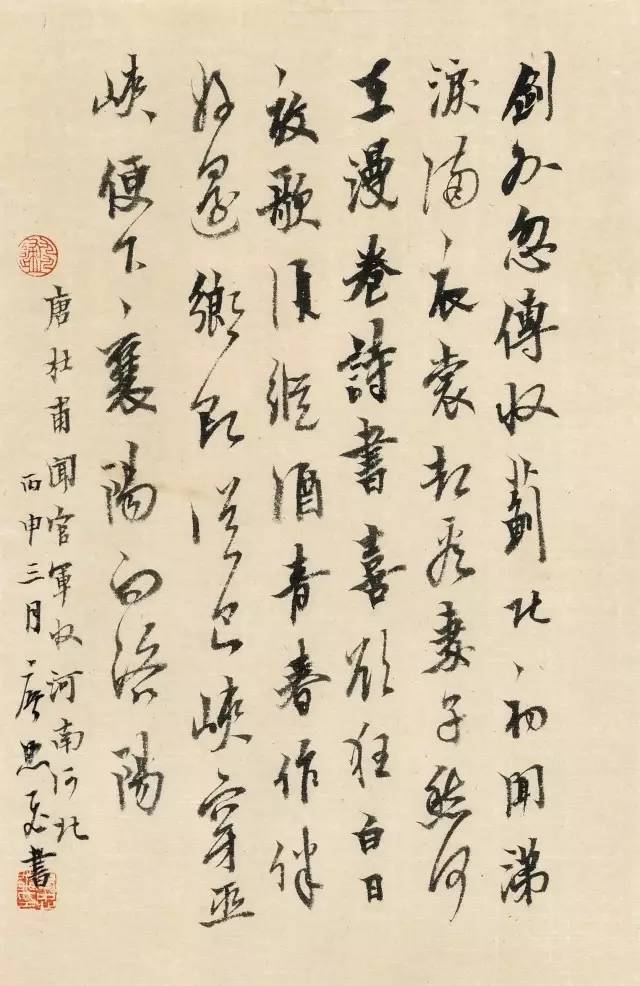 劍外忽傳收薊北初聞涕
淚滿衣裳却看妻子愁何
在漫卷詩書喜欲狂白日
放歌須縱酒青春作伴
好還鄉即從巴峽穿巫
峽便下襄陽向洛陽
唐杜甫聞官軍收河南河北
丙申三月書